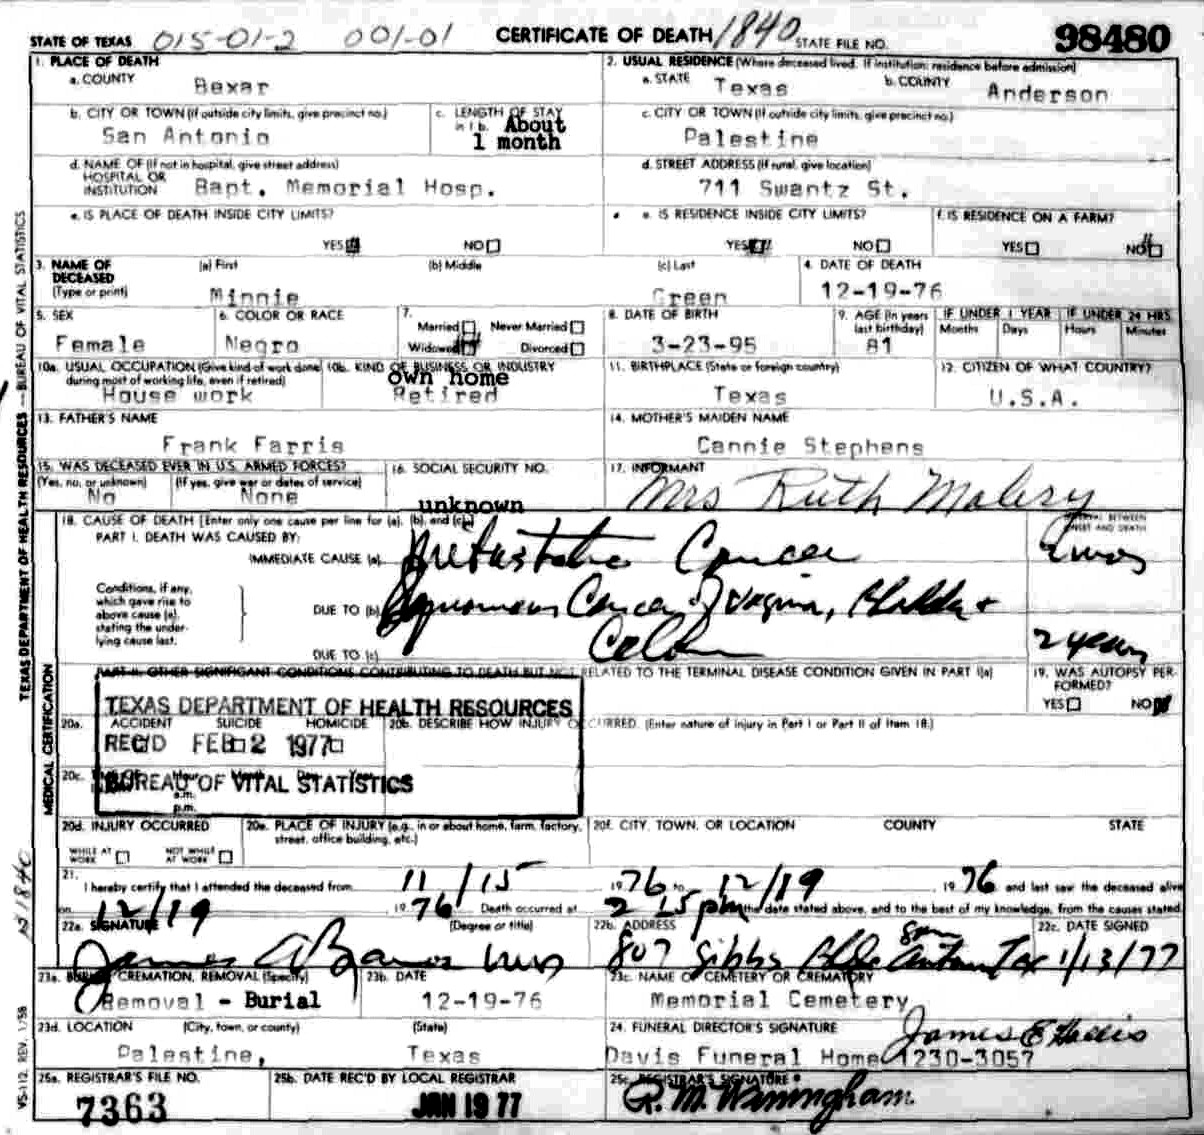 STATE OF TEXAS 015-01-2 001-01 CERTIFICATE OF DEATH 1840 STATE FILE NO. 98480
1. PLACE OF DEATH
a. COUNTY Bexar
2. USUAL RESIDENCE (Where deceased lived. If institution: residence before admission)
a. STATE Texas b. COUNTY Anderson
b. CITY OR TOWN (If outside city limits, give precinct no.) San Antonio
c. LENGTH OF STAY in 1 b. About 1 month
c. CITY OR TOWN (If outside city limits, give precinct no.) Palestine
d. NAME OF (If not in hospital, give street address) HOSPITAL OR INSTITUTION Bapt. Memorial Hosp.
d. STREET ADDRESS (If rural, give location) 711 Swantz St.
e. IS PLACE OF DEATH INSIDE CITY LIMITS? YES NO
e. IS RESIDENCE INSIDE CITY LIMITS? YES NO
f. IS RESIDENCE ON A FARM? YES NO
3. NAME OF DECEASED (Type or print) (a) First Minnie (b) Middle (c) Last Green
4. DATE OF DEATH 12-19-76
5. SEX Female
6. COLOR OR RACE Negro
7. Married Never Married Widowed Divorced
8. DATE OF BIRTH 3-23-95
9. AGE (In years last birthday) 81
IF UNDER 1 YEAR Months Days
IF UNDER 24 HRS. Hours Minutes
10a. USUAL OCCUPATION (Give kind of work done during most of working life, even if retired) House work
10b. KIND OF BUSINESS OR INDUSTRY own home Retired
11. BIRTHPLACE (State or foreign country) Texas
12. CITIZEN OF WHAT COUNTRY? U.S.A.
13. FATHER'S NAME Frank Farris
14. MOTHER'S MAIDEN NAME Cannie Stephens
15. WAS DECEASED EVER IN U.S. ARMED FORCES? (Yes, no, or unknown) No (If yes, give war or dates of service) None
16. SOCIAL SECURITY NO. unknown
17. INFORMANT Mrs Ruth
18. CAUSE OF DEATH [Enter only one cause per line for (a), (b), and (c).] INTERVAL BETWEEN ONSET AND DEATH
PART I. DEATH WAS CAUSED BY:
IMMEDIATE CAUSE (a) Metastatic Cancer 2 mos
Conditions, if any, which gave rise to above cause (a), stating the underlying cause last.
DUE TO (b) Squamous Cancer of Vagina, Bladder +
DUE TO (c) Colon 2 years
PART II. OTHER SIGNIFICANT CONDITIONS CONTRIBUTING TO DEATH BUT NOT RELATED TO THE TERMINAL DISEASE CONDITION GIVEN IN PART I(a)
19. WAS AUTOPSY PERFORMED? YES NO
TEXAS DEPARTMENT OF HEALTH RESOURCES
20a. ACCIDENT SUICIDE HOMICIDE
20b. DESCRIBE HOW INJURY OCCURRED. (Enter nature of injury in Part I or Part II of Item 18.)
REC'D FEB 2 1977
20c. Hour Month Day Year a.m. p.m.
BUREAU OF VITAL STATISTICS
20d. INJURY OCCURRED WHILE AT WORK NOT WHILE AT WORK
20e. PLACE OF INJURY (e.g., in or about home, farm, factory, street, office building, etc.)
20f. CITY, TOWN, OR LOCATION COUNTY STATE
21. I hereby certify that I attended the deceased from 11/15 1976 to 12/19, 1976 and last saw the deceased alive
on 12/19 1976 Death occurred at 2 15 pm the date stated above, and to the best of my knowledge, from the causes stated.
22a. SIGNATURE (Degree or title) James
22b. ADDRESS 807 Gibbs Bldg San Antonio Tex
22c. DATE SIGNED 1/13/77
23a. BURIAL, CREMATION, REMOVAL (Specify) Removal - Burial
23b. DATE 12-19-76
23c. NAME OF CEMETERY OR CREMATORY Memorial Cemetery
23d. LOCATION (City, town, or county) (State) Palestine, Texas
24. FUNERAL DIRECTOR'S SIGNATURE James E
Davis Funeral Home 1230-3057
25a. REGISTRAR'S FILE NO. 7363
25b. DATE REC'D BY LOCAL REGISTRAR JAN 19 77
25c. REGISTRAR'S SIGNATURE R. M. Winingham
TEXAS DEPARTMENT OF HEALTH RESOURCES — BUREAU OF VITAL STATISTICS
MEDICAL CERTIFICATION
VS-112, REV. 1/58